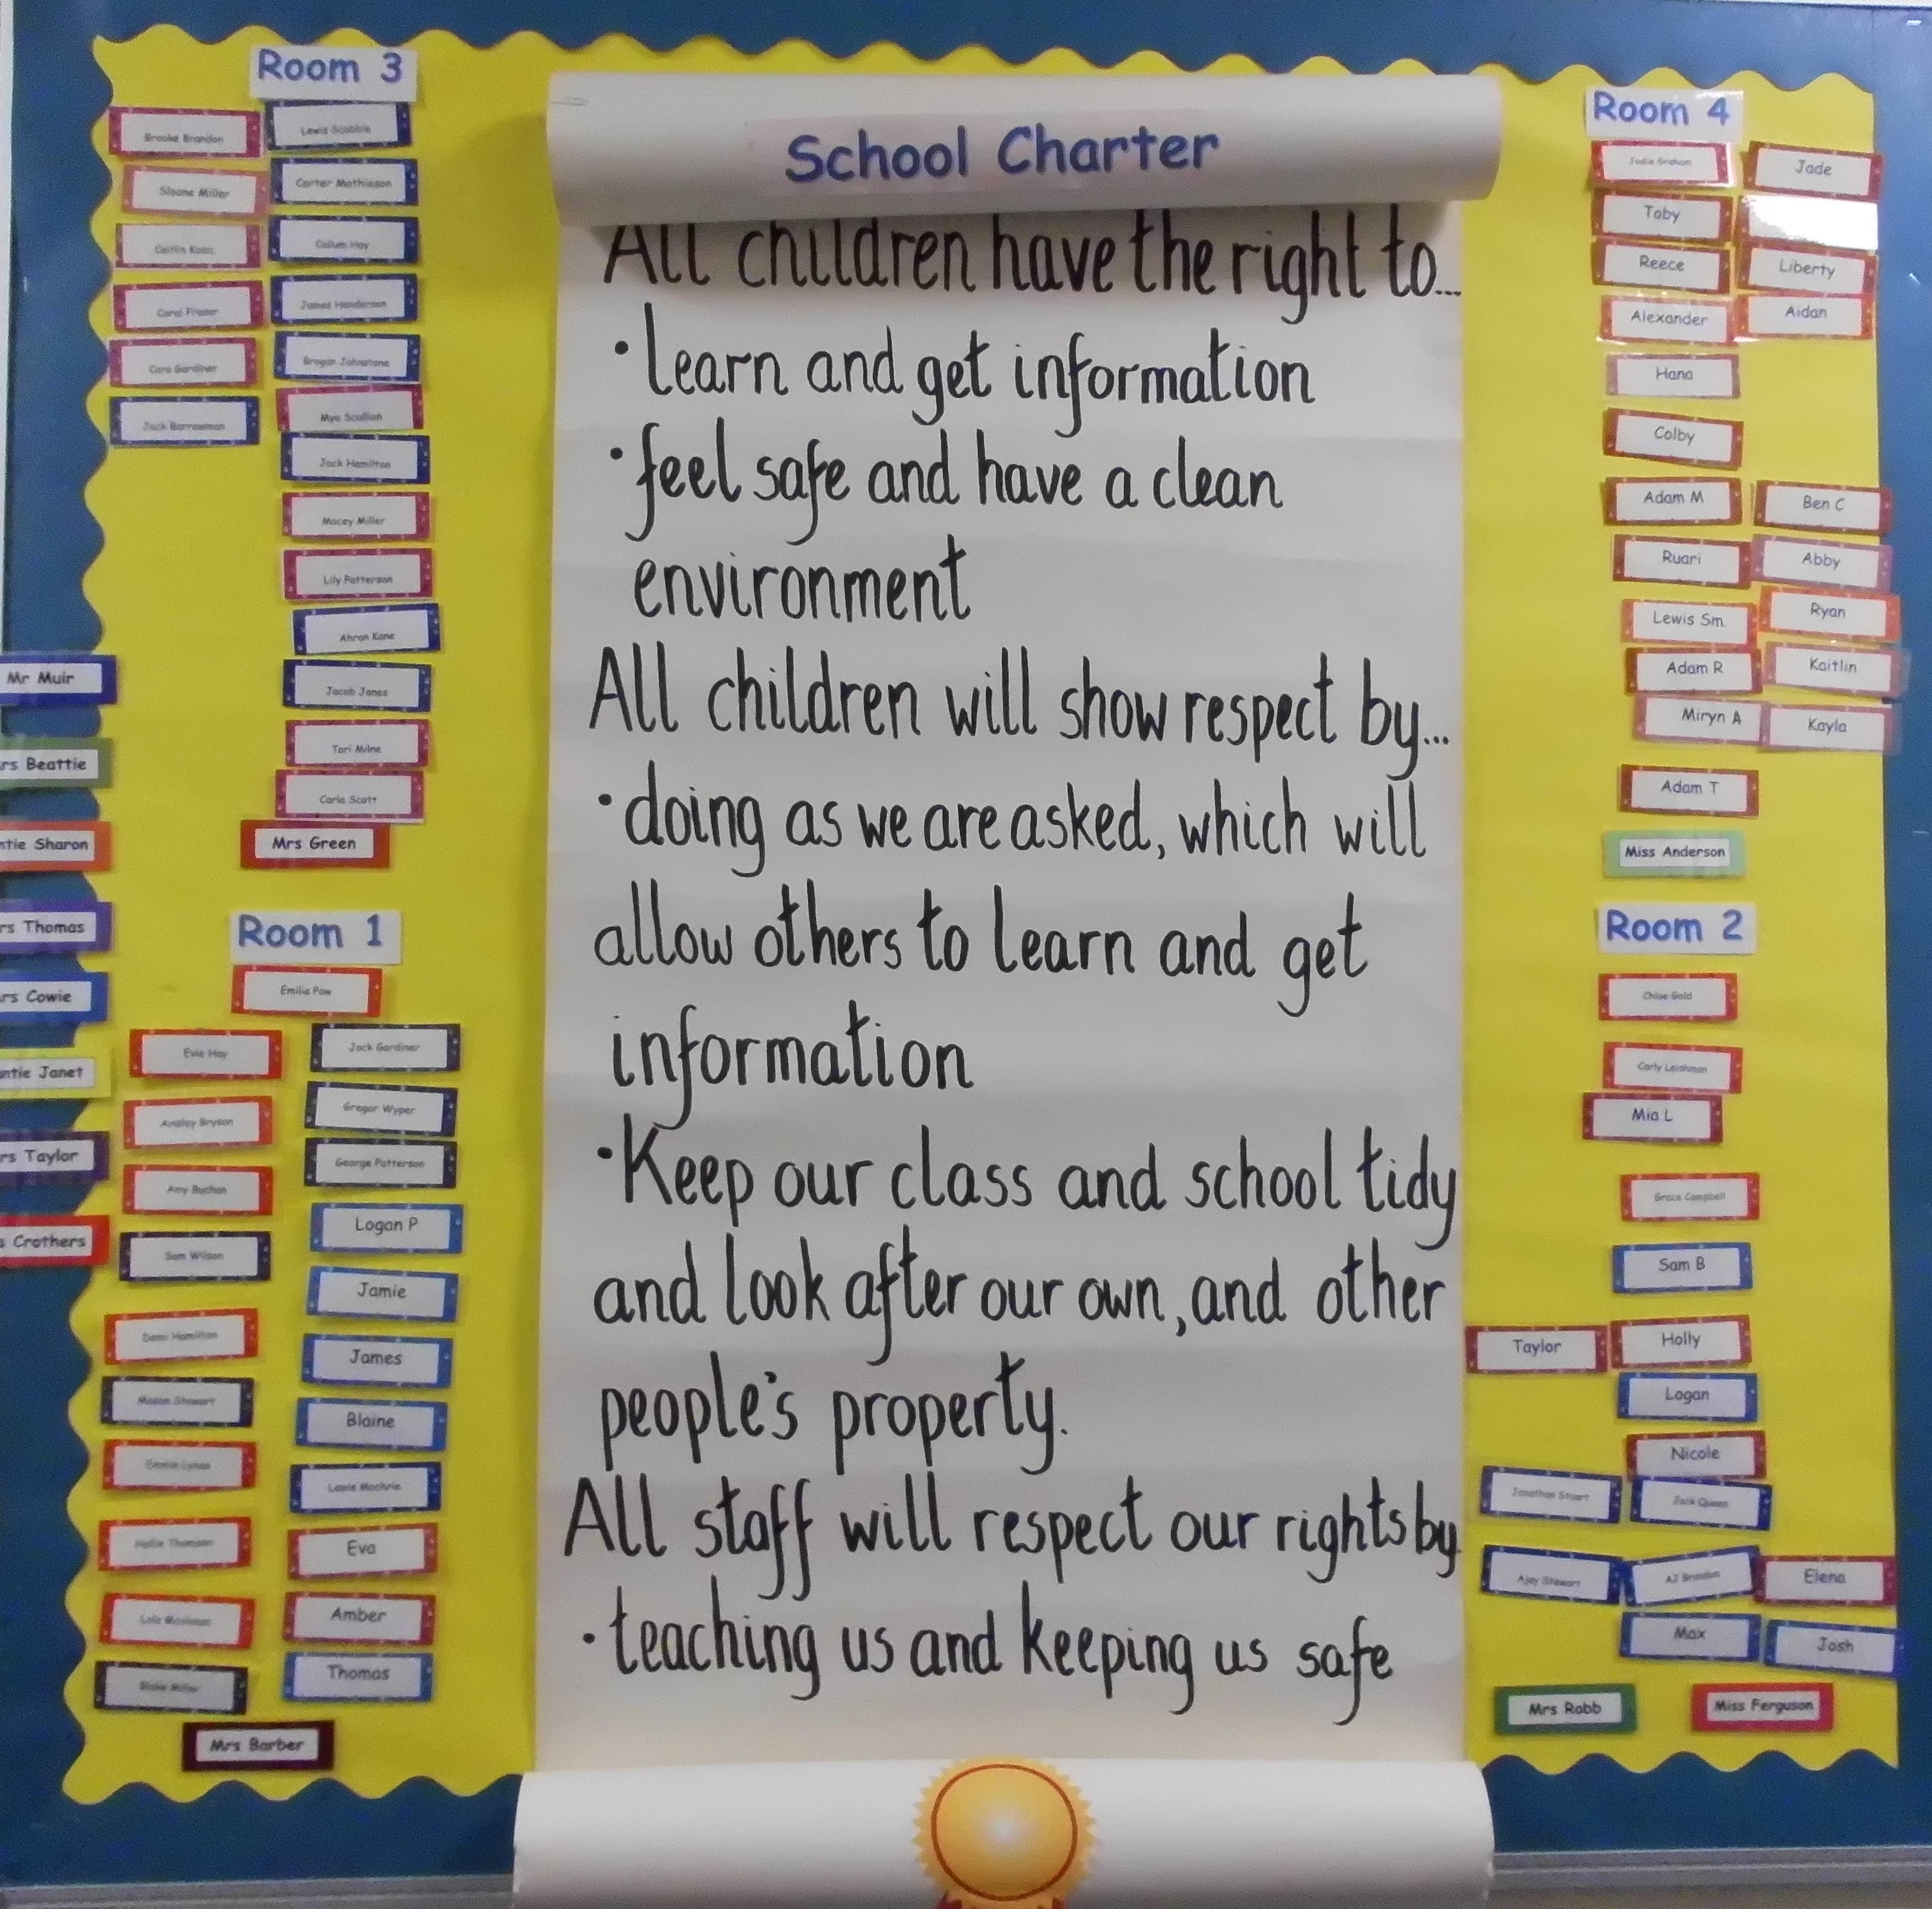 School Charter
All children have the right to...
•learn and get information
•feel safe and have a clean
environment
All children will show respect by...
•doing as we are asked, which will
allow others to learn and get
information
•Keep our class and school tidy
and look after our own, and other
people's property.
All staff will respect our rights by
•teaching us and keeping us safe
Room 3
Brooke Brandon
Lewis Scobbie
Sloane Miller
Carter Mathieson
Caitlin
Callum Hay
Carol Fraser
James Henderson
Cara Gardiner
Brogan Johnstone
Jack Barrowman
Mya Scullion
Jack Hamilton
Macey Miller
Lily Patterson
Ahron Kane
Jacob Jones
Tori Milne
Carla Scott
Mrs Green
Mr Muir
rs Beattie
ntie Sharon
rs Thomas
rs Cowie
ntie Janet
rs Taylor
s Crothers
Room 1
Emilia Pow
Evie Hay
Jack Gardiner
Ainsley Bryson
Gregor Wyper
George Patterson
Amy Buchan
Logan P
Sam Wilson
Jamie
Demi Hamilton
James
Mason Stewart
Blaine
Lewis Mochrie
Hollie Thomson
Eva
Amber
Blake Miller
Thomas
Mrs Barber
Room 4
Jodie Graham
Jade
Toby
Reece
Liberty
Alexander
Aidan
Hana
Colby
Adam M
Ben C
Ruari
Abby
Lewis Sm.
Ryan
Adam R
Kaitlin
Miryn A
Kayla
Adam T
Miss Anderson
Room 2
Chloe Gold
Carly Leishman
Mia L
Grace Campbell
Sam B
Taylor
Holly
Logan
Nicole
Jonathan Stuart
Jack Queen
Ajay Stewart
AJ Brandon
Elena
Max
Josh
Mrs Robb
Miss Ferguson